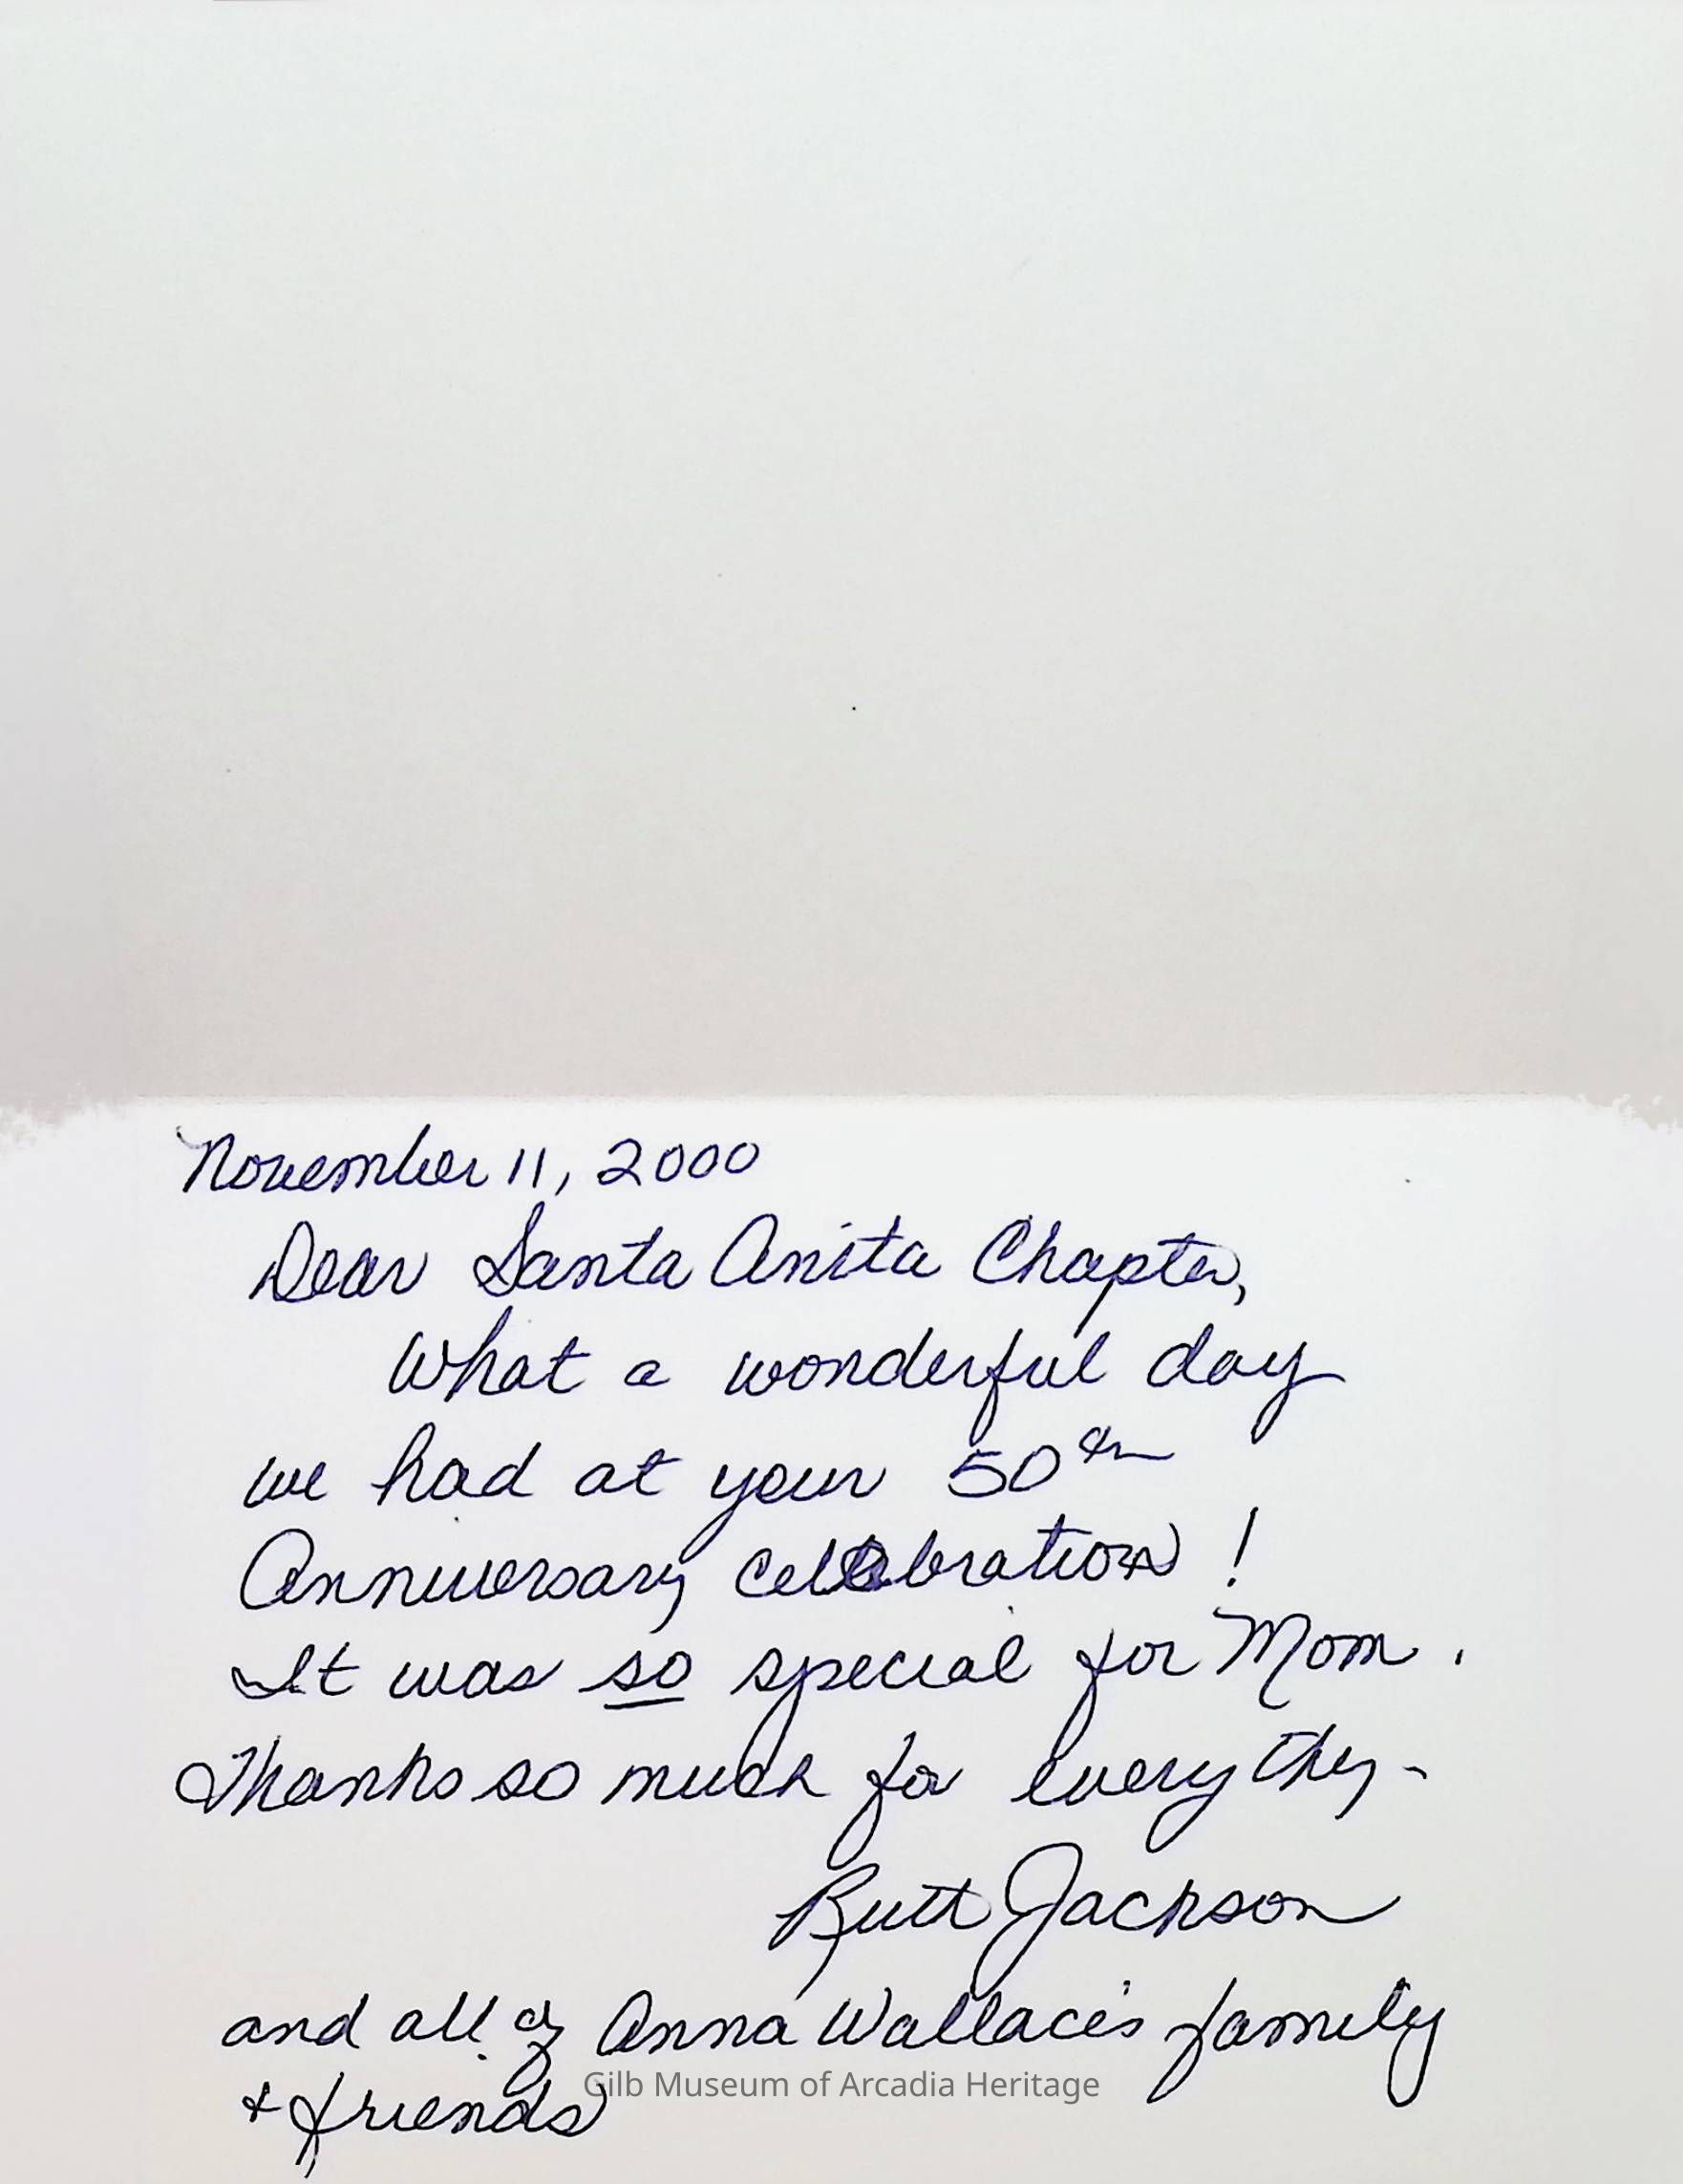 November 11, 2000
Dear Santa Anita Chapter,
What a wonderful day
we had at your 50th
Anniversary celebration!
It was so special for Mom.
Thanks so much for everything -
Ruth Jackson
and all of Anna Wallace's family
+ friends
Gilb Museum of Arcadia Heritage